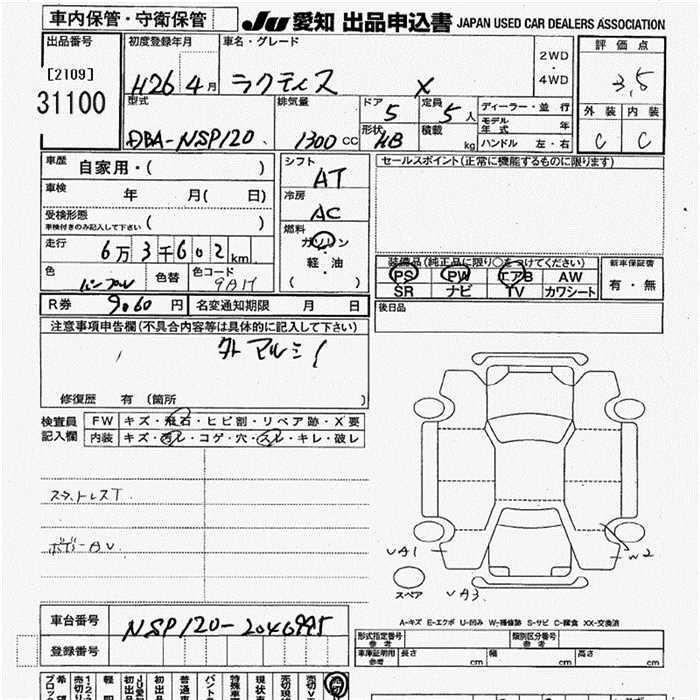 車内保管・守衛保管
JU 愛知 出品申込書 JAPAN USED CAR DEALERS ASSOCIATION
出品番号
[2109]
31100
初度登録年月
H26 4月
車名・グレード
ラクティス X
2WD
・
4WD
評価点
3,5
外装 内装
C C
型式
DBA-NSP120
排気量
1300 CC
ドア
5
形状
HB
定員
5人
積載 kg
ディーラー・並行
モデル年式 年
ハンドル 左・右
車歴 自家用・( )
車検 年 月( 日)
受検形態
車検付きのみ記入して下さい ( )
走行 6万3千602km
色 色替 色コード
9AH
R券 9,060円 名変通知期限 月 日
シフト
AT
冷房
AC
燃料
ガソリン
・
軽・油
( )
セールスポイント(正常に機能するものに限ります)
装備品(純正品に限り○をつけてください)
PS PW エアB AW
SR ナビ TV カワシート
新車保証書
有・無
後日品
注意事項申告欄(不具合内容等は具体的に記入して下さい)
修復歴 有 (箇所 )
検査員記入欄
FW キズ・飛石・ヒビ割・リペア跡・X要
内装 キズ・汚レ・コゲ・穴・スレ・キレ・破レ
UA1
W2
UA3
スペア
A-キズ E-エクボ U-凹み W-補修跡 S-サビ C-腐食 XX-交換済
車台番号 NSP120-2046995
登録番号
形式指定番号
参考
類別区分番号
参考
車庫証明用
参考
長さ cm 幅 cm 高さ cm